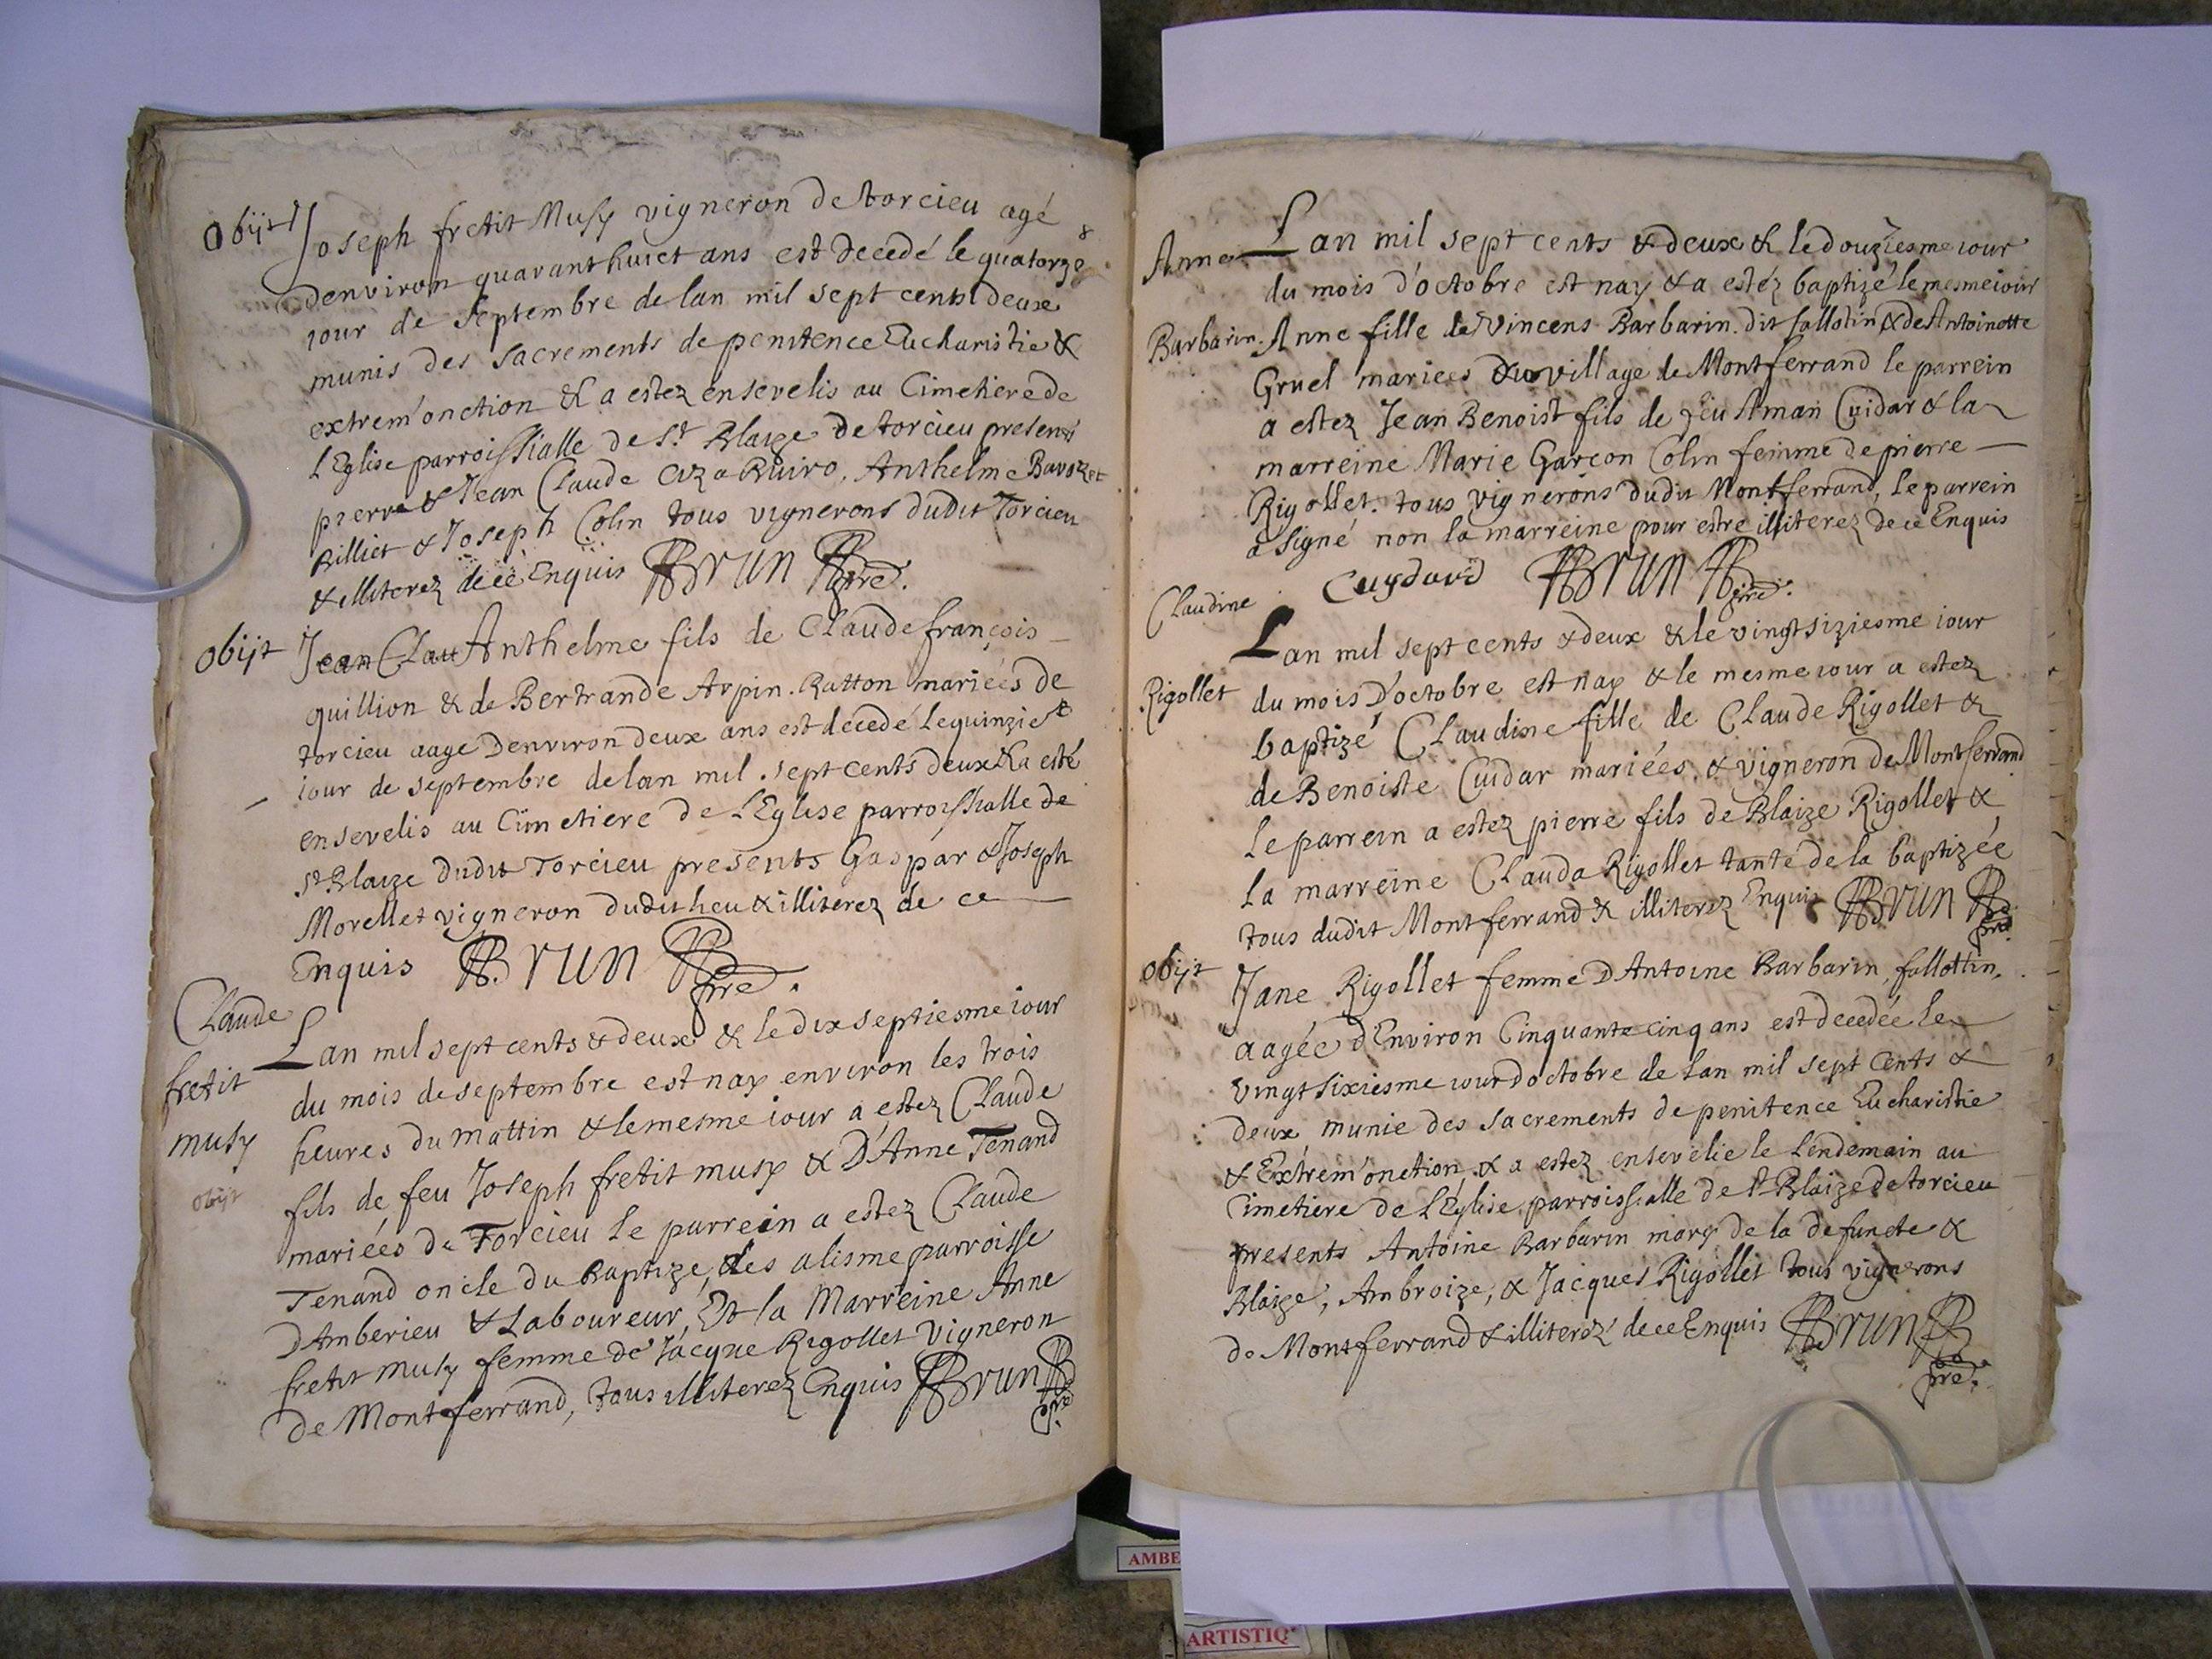 Obijt Joseph fretit Musy vigneron de torcieu agé
denviron quaranthuict ans est decedé le quatorze
iour de septembre de lan mil sept cents deux
munis des sacrements de penitence Eucharistie &
extrem'onction & a estez ensevelis au Cimetiere de
l'Eglise parroissialle de St Blaize de torcieu presents
pierre & Jean Claude Anthelme
Billiet & Joseph Colin tous vignerons dudit Torcieu
& illiterez de ce Enquis Brun pre.
Obijt Jean Clau Anthelme fils de Claude françois
quillion & de Bertrande Arpin. Ratton mariées de
torcieu aage Denviron deux ans est decedé le quinzie
iour de septembre de lan mil sept cents deux & a esté
ensevelis au Cimetiere de l'Eglise parroissialle de
St Blaize dudit Torcieu presents Gaspar & Joseph
Morellet vigneron dudit lieu & illiterez de ce
Enquis Brun pre.
Claude
fretit
musy
obijt
Lan mil sept cents & deux & le dix septiesme iour
du mois de septembre est nay environ les trois
heures du mattin & le mesme iour a estez Claude
fils de feu Joseph fretit musy & D'Anne Tenand
mariées de Torcieu le parrein a estez Claude
Tenand oncle du Baptize, des alisme parroisse
D'Amberieu & Laboureur, Et la Marreine Anne
fretit musy femme de Jacque Rigollet Vigneron
de Montferrand, tous illiterez Enquis Brun pre.
Anne
Barbarin.
Lan mil sept cents & deux & le douziesme iour
du mois d'octobre est nay & a estéz baptizé le mesme iour
Anne fille de Vincens Barbarin dit fallotin & de Antoinette
Gruel mariees du village de Montferrand le parrein
a estez Jean Benoist fils de feu Aman Cuidar & la
marreine Marie Garcon Colin femme de pierre
Rigollet. tous vignerons dudit Montferrand, le parrein
a signé non la marreine pour estre illiterez de ce Enquis
Brun pre.
Claudine
Rigollet
Lan mil sept cents & deux & le vingt siziesme iour
du mois D'octobre est nay & le mesme iour a estez
baptizé Claudine fille de Claude Rigollet &
de Benoiste Cuidar mariéés & vigneron de Montferrand
le parrein a estez pierre fils de Blaize Rigollet &
la marreine Clauda Rigollet tante de la baptizée
tous dudit Montferrand & illiterez Enquis Brun pre.
Obijt Jane Rigollet femme D'Antoine Barbarin, fallottin.
aagée d'Environ Cinquante cinq ans est decedée le
vingt sixiesme iour doctobre de lan mil sept cents &
deux munie des sacrements de penitence Eucharistie
& Extrem'onction, & a estez ensevelie le lendemain au
Cimetiere de l'Eglise parroissialle de St Blaize de torcieu
presents Antoine Barbarin mary de la defuncte &
Blaize, Ambroize, & Jacques Rigollet tous vignerons
de Montferrand & illiterez de ce Enquis Brun
pre.
AMBE
ARTISTIQ